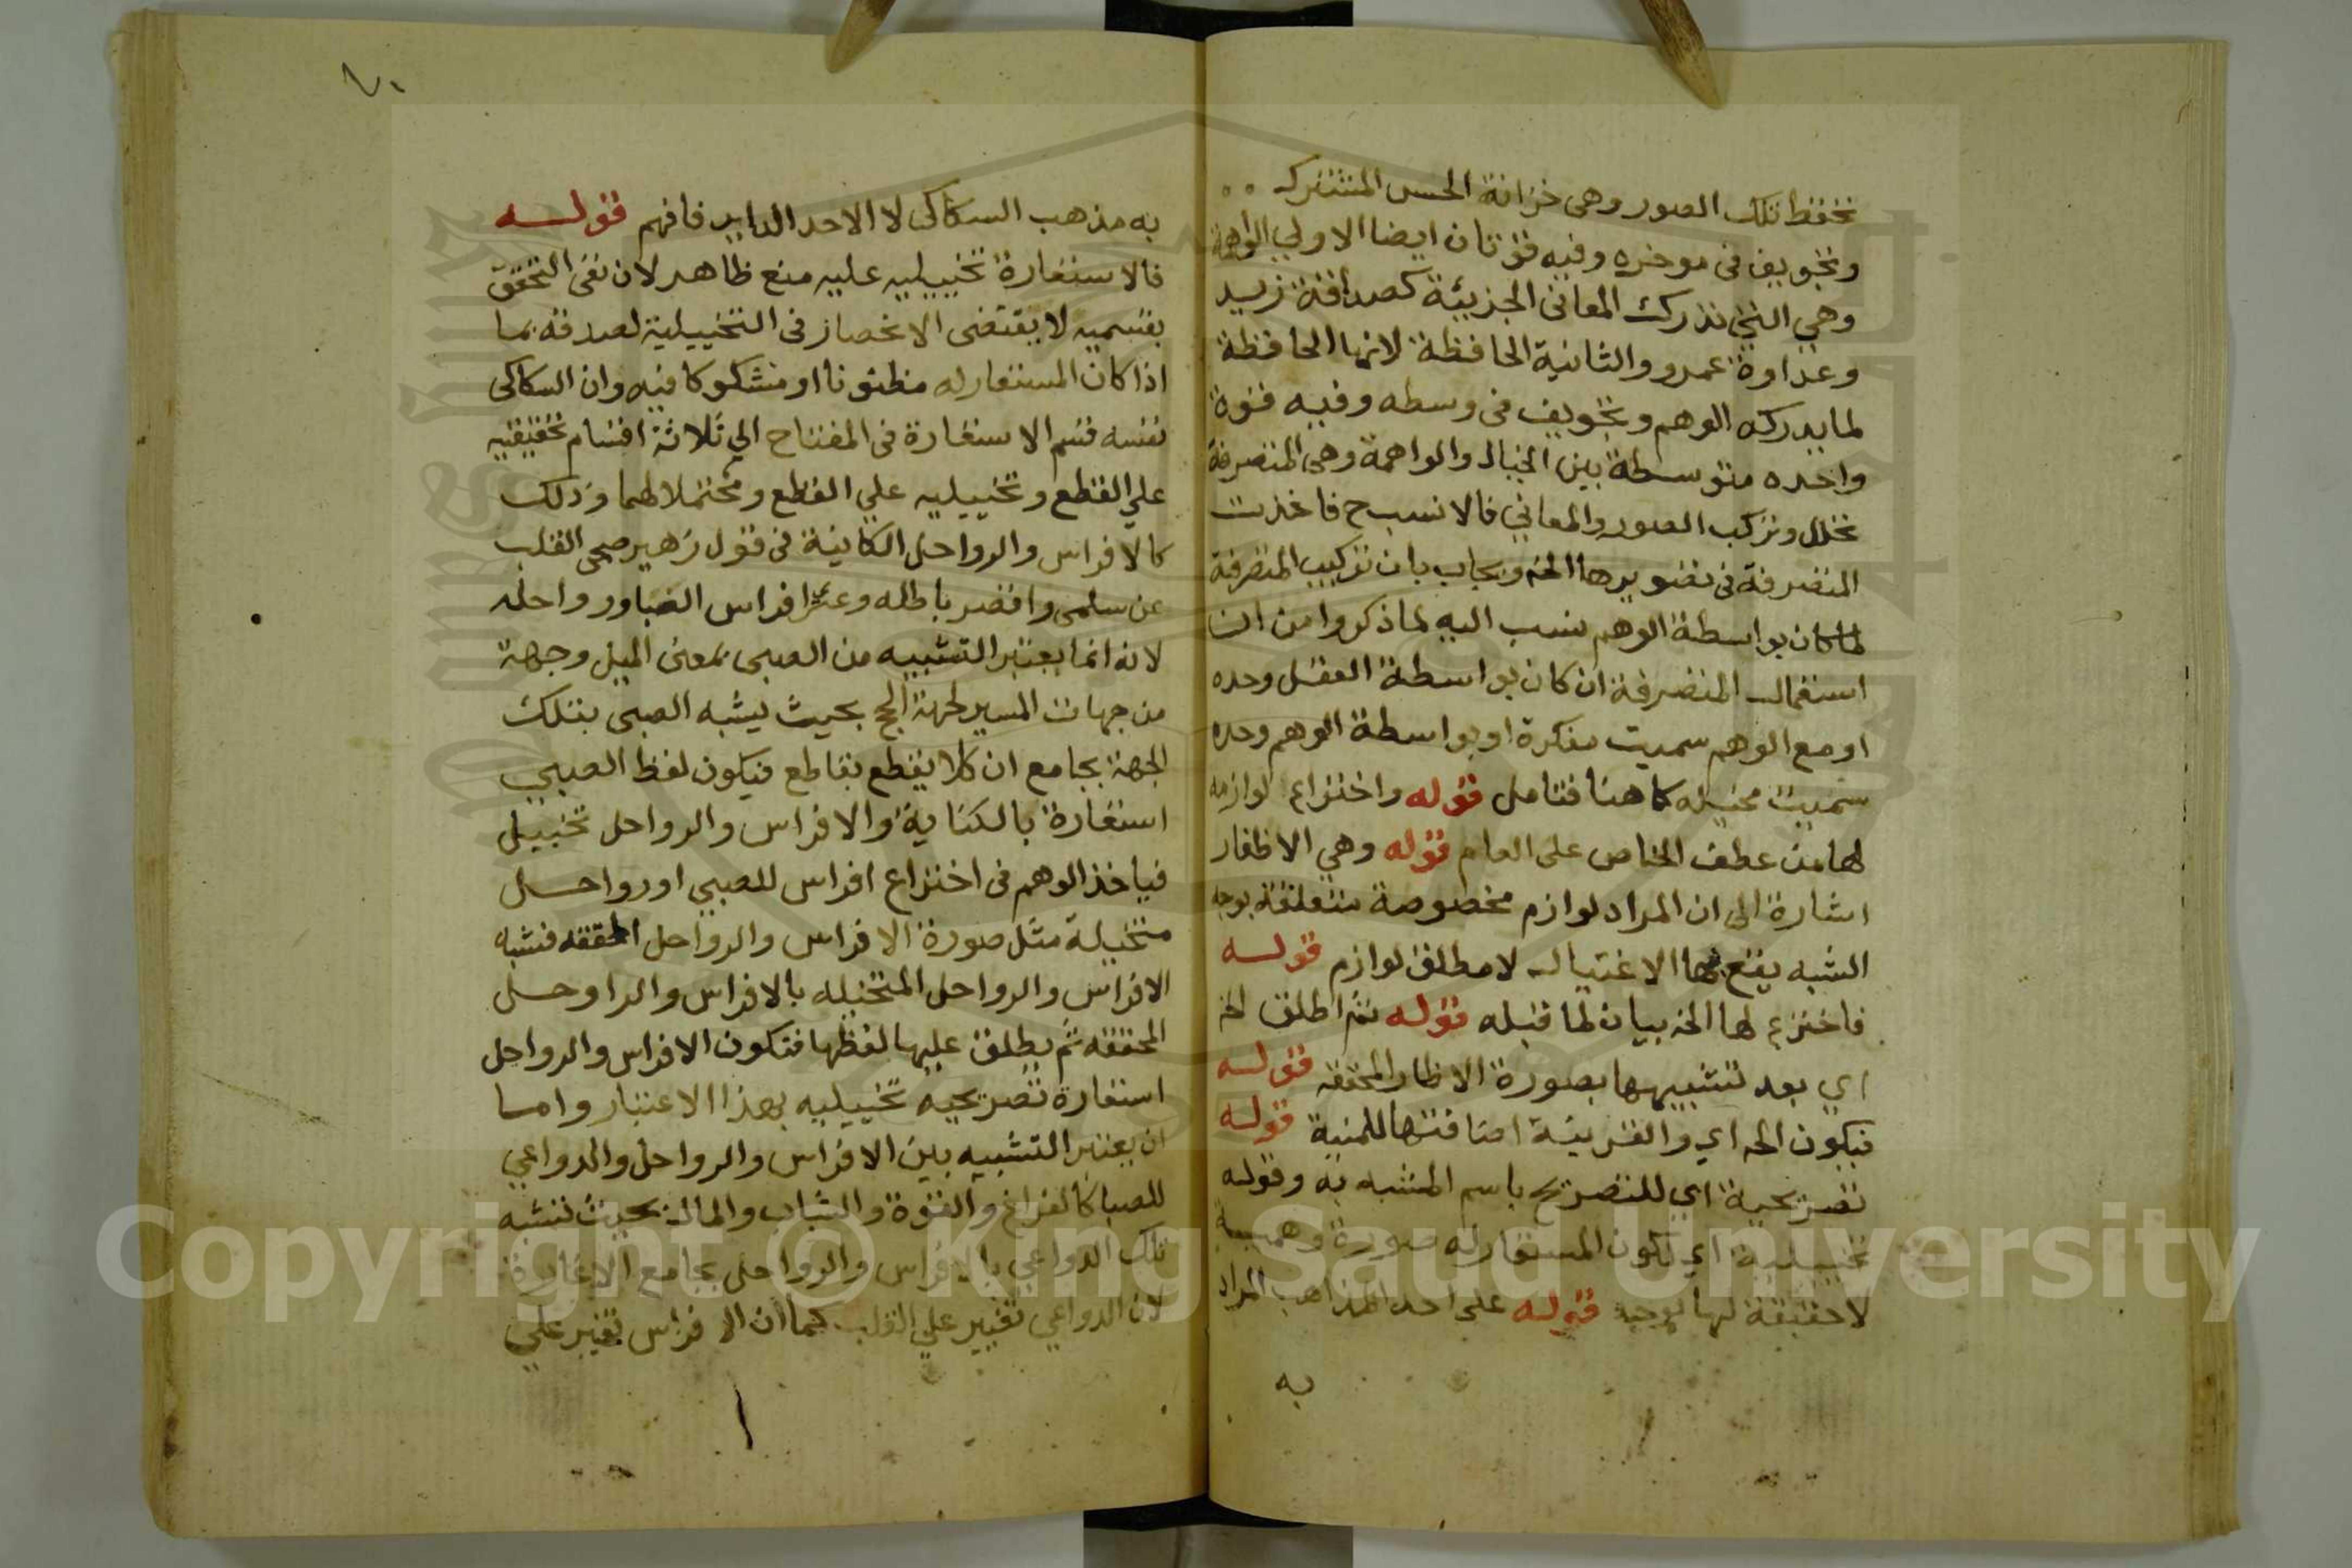 تحفظ تلك الصور وهى خزانة الحس المشترك
وتجويف فى موخره وفيه قوتان ايضا الاولي الواهمة
وهي التي تدرك المعانى الجزيئة كصداقة زيد
وعداوة عمرو والثانية الحافظة لانها الحافظة
لما يدركه الوهم وتجويف فى وسطه وفيه قوة
واحده متوسطة بين الخيال والواهمة وهى المتصرفة
تحلل وتركب الصور والمعاني فالانسب ح فاخذت
المتصرفة فى تصويرها الخ ويجاب بان تركيب المتصرفة
لما كان بواسطة الوهم نسب اليه لما ذكروا من ان
استعمال المتصرفة ان كان بواسطة العقل وحده
او مع الوهم سميت مفكرة او بواسطة الوهم وحده
سميت مخيله كما هنا فتامل قوله واختراع لوازمه
لها من عطف الخاص على العام قوله وهي الاظفار
اشارة الى ان المراد لوازم مخصوصة متعلقة بوجه
الشبه يقع بها الاغتيال لا مطلق لوازم قوله
فاخترع لها الخ بيان لما قبله قوله ثم اطلق الخ
اي بعد تشبيهها بصورة الاظفار المحققه قوله
فيكون الخ اي والقرينة اضافتها للمنية قوله
تصريحية اي للتصريح باسم المشبه به وقوله
تخييلية اي لكون المستعار له صورة وهمية
لا حقيقة لها توجد قوله على احد المذاهب المراد
به
٧٠
به مذهب السكاكى لا الاحد الداير فافهم قوله
فالاستعارة تخييليه عليه منع ظاهر لان نفى التحقق
بقسميه لا يقتضى الانحصار فى التخييلية لصدقه بما
اذا كان المستعار له مظنونا او مشكوكا فيه وان السكاكى
نفسه قسم الاستعارة فى المفتاح الي ثلاثة اقسام تحقيقيه
علي القطع وتخييليه علي القطع ومحتملا لهما وذلك
كالافراس والرواحل الكاينة فى قول زهير صحى القلب
عن سلمى واقصر باطله وعرى افراس الصبا ورواحله
لانه انما يعتبر التشبيه من الصبى بمعنى الميل وجهة
من جهات المسير لجهة الحج بحيث يشبه الصبى بتلك
الجهة بجامع ان كلا يقطع بقاطع فيكون لفظ الصبي
استعارة بالكناية والافراس والرواحل تخييل
فياخذ الوهم فى اختراع افراس للصبي او رواحل
متخيلة مثل صورة الافراس والرواحل المحققه فشبه
الافراس والرواحل المتخيله بالافراس والراوحل
المحققه ثم يطلق عليها لفظها فتكون الافراس والرواحل
استعارة تصريحيه تخييليه بهذا الاعتبار واما
ان يعتبر التشبيه بين الافراس والرواحل والدواعي
للصبا كالفراغ والقوة والشباب والمال بحيث تشبه
تلك الدواعي بالافراس والرواحل بجامع الاغارة
لان الدواعي تغير علي القلب كما ان الافراس تغير علي
Copyright © King Saud University